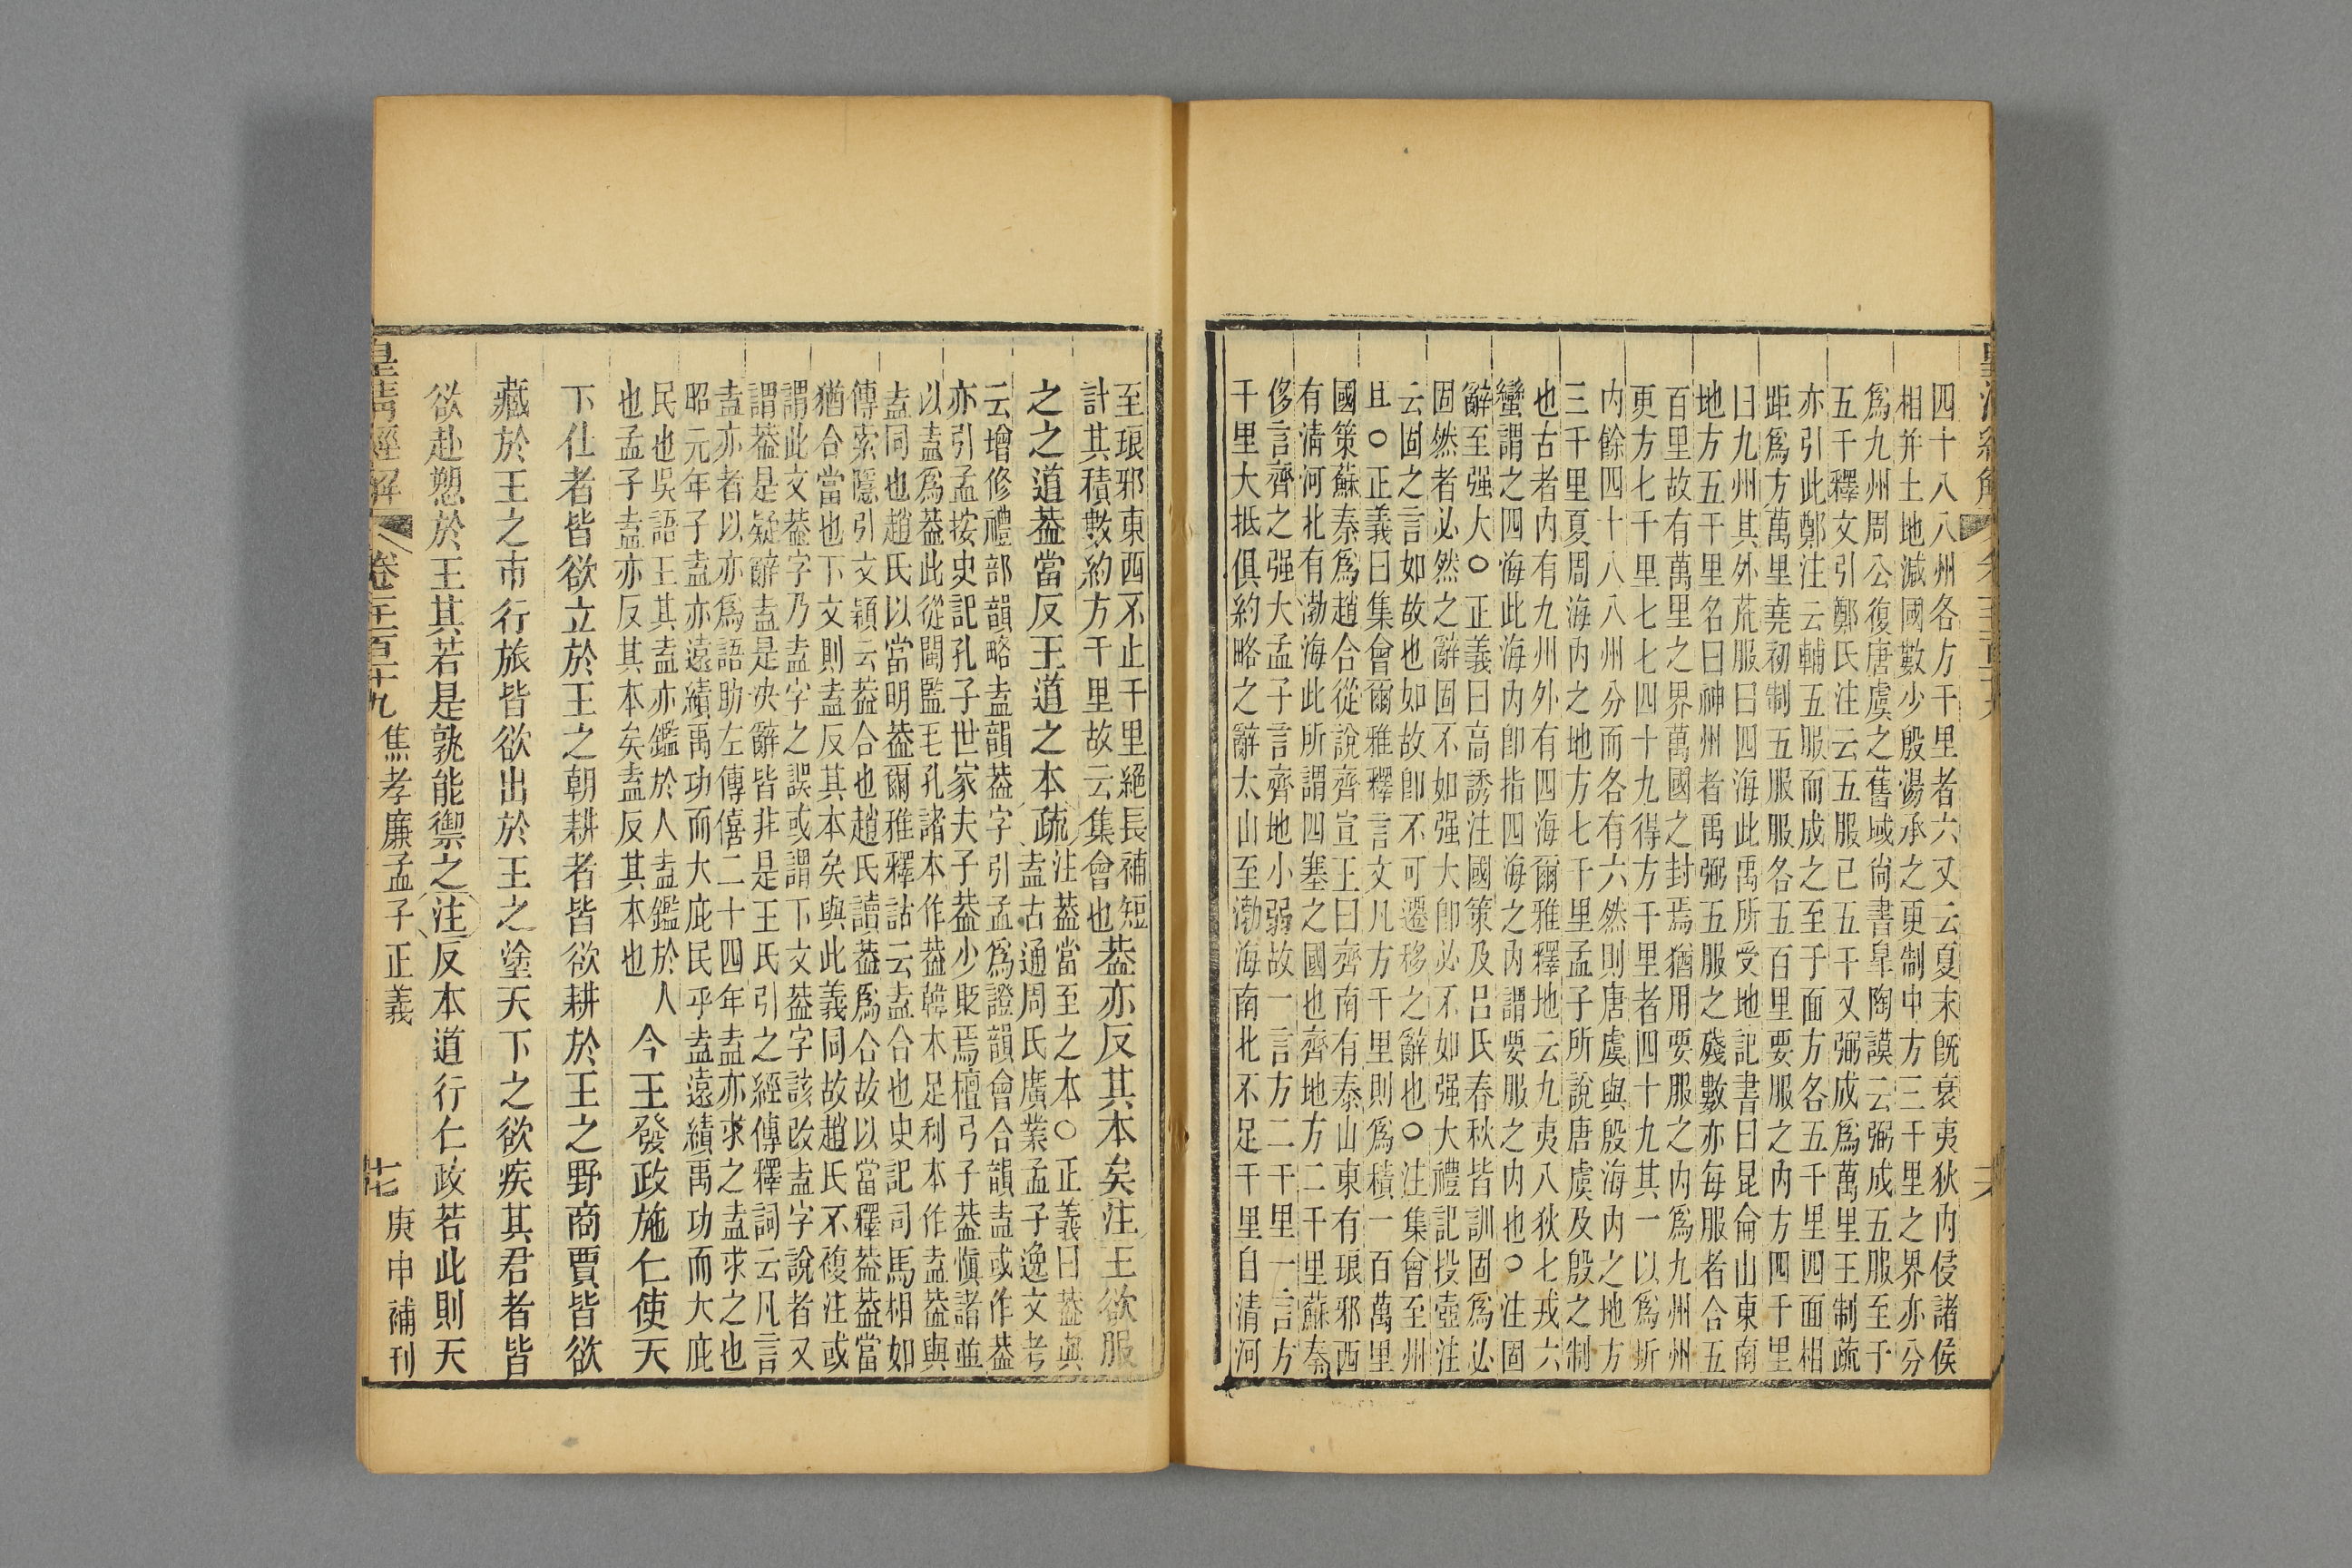 四十八八州各方千里者六又云夏末既衰夷狄內侵諸侯
相并土地減國數少殷湯承之更制中方三千里之界亦分
爲九州周公復唐虞之舊域尙書臯陶謨云弼成五服至于
五千釋文引鄭氏注云五服已五千又弼成爲萬里王制疏
亦引此鄭注云輔五服而成之至于面方各五千里四面相
距爲方萬里堯初制五服服各五百里要服之內方四千里
曰九州其外荒服曰四海此禹所受地記書曰昆侖山東南
地方五千里名曰神州者禹弼五服之殘數亦每服者合五
百里故有萬里之界萬國之封焉猶用要服之內爲九州州
更方七千里七七四十九得方千里者四十九其一以爲圻
內餘四十八八州分而各有六然則唐虞與殷海內之地方
三千里夏周海內之地方七千里孟子所說唐虞及殷之制
也古者內有九州外有四海爾雅釋地云九夷八狄七戎六
蠻謂之四海此海內卽指四海之內謂要服之內也○注固
辭至强大○正義曰高誘注國策及呂氏春秋皆訓固爲必
固然者必然之辭固不如强大卽必不如强大禮記投壺注
云固之言如故也如故卽不可遷移之辭也○注集會至州
且○正義曰集會爾雅釋言文凡方千里則爲積一百萬里
國策蘇秦爲趙合從說齊宣王曰齊南有泰山東有琅邪西
有淸河北有渤海此所謂四塞之國也齊地方二千里蘇秦
侈言齊之强大孟子言齊地小弱故一言方二千里一言方
千里大抵俱約略之辭太山至渤海南北不足千里自清河
至琅邪東西不止千里絕長補短
計其積數約方千里故云集會也葢亦反其本矣注王欲服
之之道葢當反王道之本疏注葢當至之本○正義曰葢與
盍古通周氏廣業孟子逸文考
云增修禮部韻略盍韻葢字引孟爲證韻會合韻盍或作葢
亦引孟按史記孔子世家夫子葢少貶焉檀弓子葢愼諸並
以盍爲葢此從閩監毛孔諸本作葢韓本足利本作盍葢與
盍同也趙氏以當明葢爾雅釋詁云盍合也史記司馬相如
傳索隱引文穎云葢合也趙氏讀葢爲合故以當釋葢葢當
猶合當也下文則盍反其本矣與此義同故趙氏不複注或
謂此文葢字乃盍字之誤或謂下文葢字該改盍字說者又
謂葢是疑辭盍是決辭皆非是王氏引之經傳釋詞云凡言
盍亦者以亦爲語助左傳僖二十四年盍亦求之盍求之也
昭元年子盍亦遠績禹功而大庇民乎盍遠績禹功而大庇
民也吳語王其盍亦鑑於人盍鑑於人
也孟子盍亦反其本矣盍反其本也今王發政施仁使天
下仕者皆欲立於王之朝耕者皆欲耕於王之野商賈皆欲
藏於王之市行旅皆欲出於王之塗天下之欲疾其君者皆
欲赴愬於王其若是孰能禦之注反本道行仁政若此則天
皇淸經解 卷一千一百十九 焦孝廉孟子正義 十七 庚申補刊